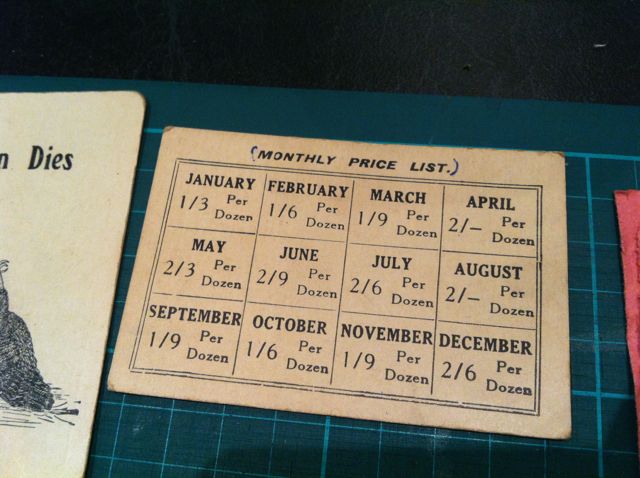 n Dies
(MONTHLY PRICE LIST.)
JANUARY
1/3 Per Dozen
FEBRUARY
1/6 Per Dozen
MARCH
1/9 Per Dozen
APRIL
2/– Per Dozen
MAY
2/3 Per Dozen
JUNE
2/9 Per Dozen
JULY
2/6 Per Dozen
AUGUST
2/– Per Dozen
SEPTEMBER
1/9 Per Dozen
OCTOBER
1/6 Per Dozen
NOVEMBER
1/9 Per Dozen
DECEMBER
2/6 Per Dozen